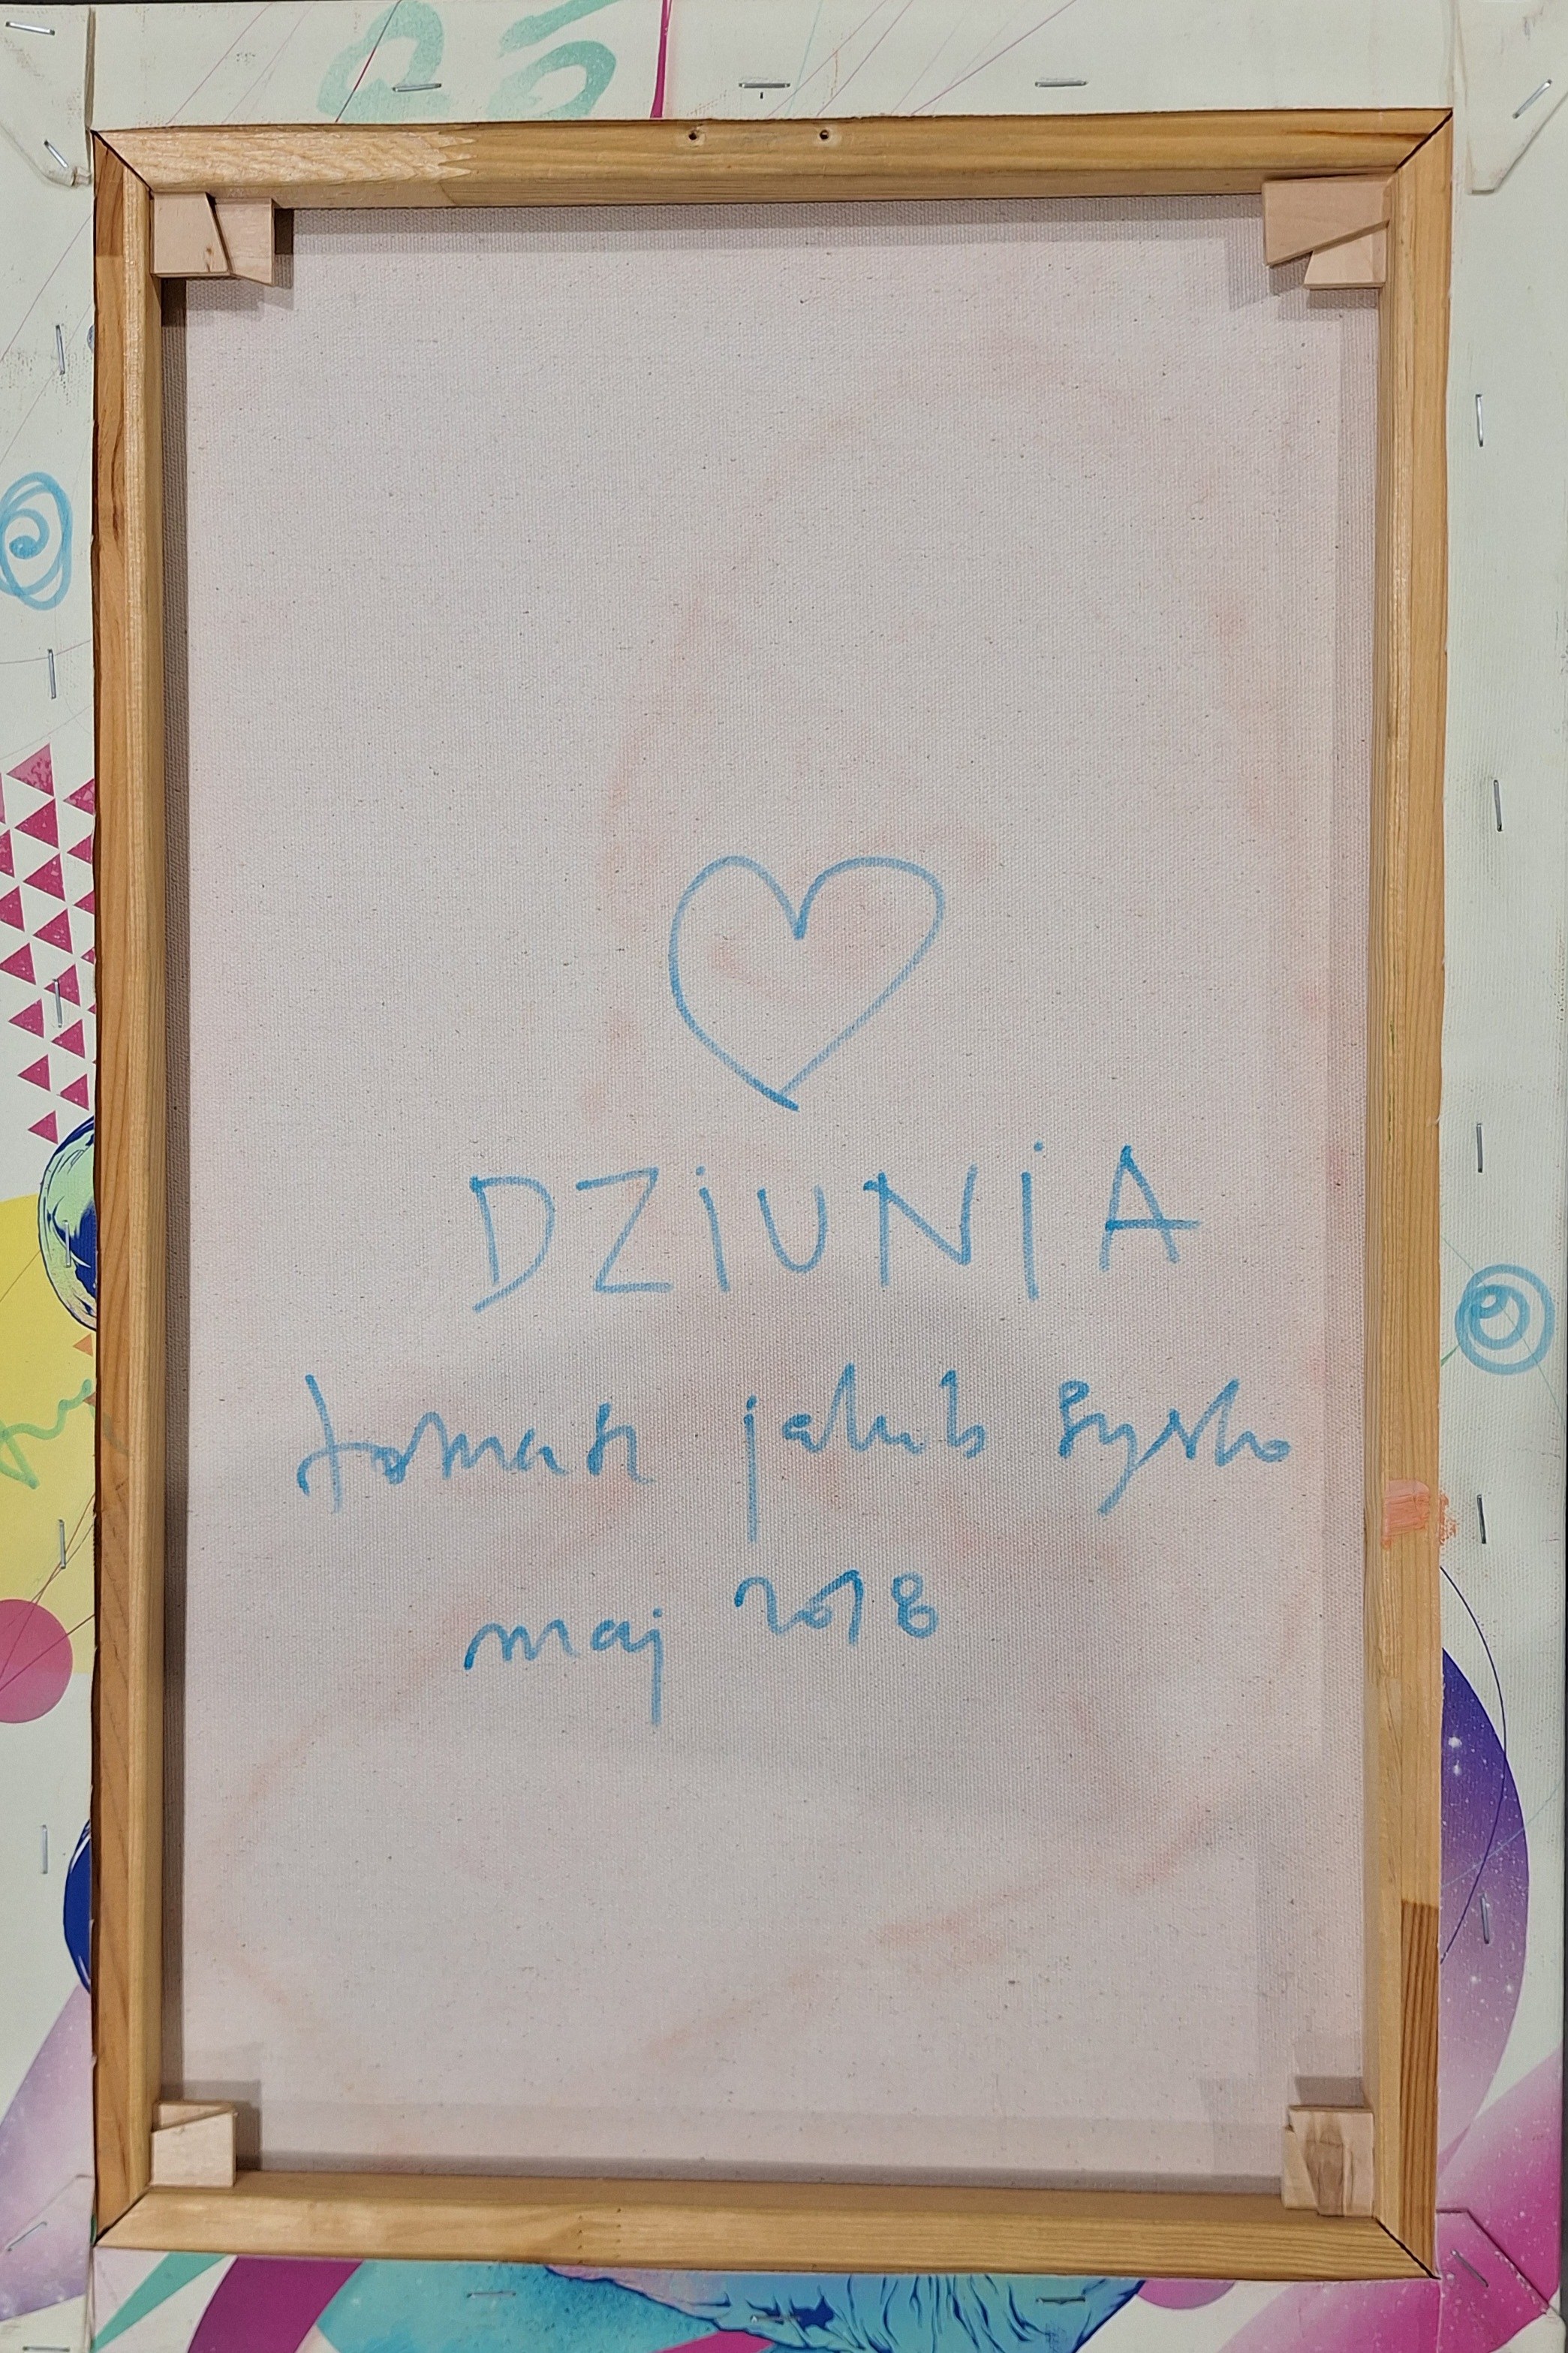 DZiUNiA
tomasz jakub sysło
maj 2018